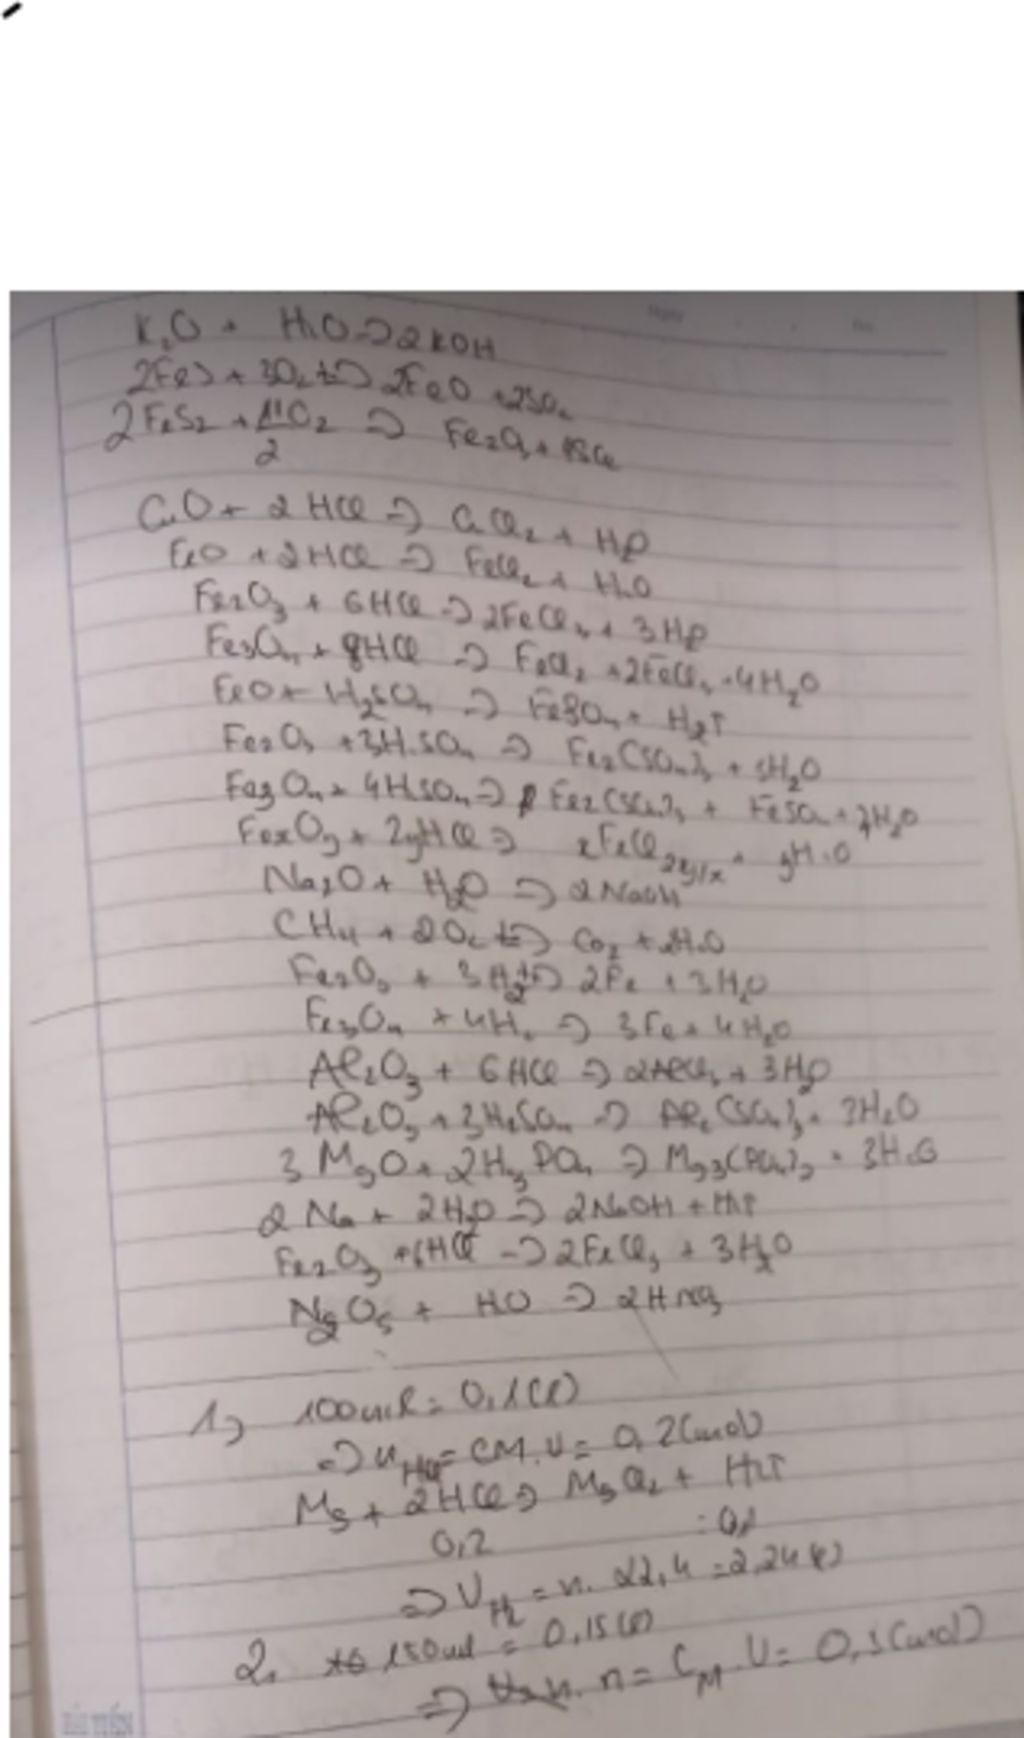 K₂O + H₂O => 2KOH
2FeS + 3O₂ t°=> 2FeO + 2SO₂
2FeS₂ + 11/2 O₂ => Fe₂O₃ + 4SO₂
CuO + 2HCl => CuCl₂ + H₂O
FeO + 2HCl => FeCl₂ + H₂O
Fe₂O₃ + 6HCl => 2FeCl₃ + 3H₂O
Fe₃O₄ + 8HCl => FeCl₂ + 2FeCl₃ + 4H₂O
FeO + H₂SO₄ => FeSO₄ + H₂↑
Fe₂O₃ + 3H₂SO₄ => Fe₂(SO₄)₃ + 3H₂O
Fe₃O₄ + 4H₂SO₄ => Fe₂(SO₄)₃ + FeSO₄ + H₂O
FexOy + 2yHCl => xFeCl2y/x + yH₂O
Na₂O + H₂O => 2NaOH
CH₄ + 2O₂ t°=> CO₂ + 2H₂O
Fe₂O₃ + 3H₂ t°=> 2Fe + 3H₂O
Fe₃O₄ + 4H₂ => 3Fe + 4H₂O
Al₂O₃ + 6HCl => 2AlCl₃ + 3H₂O
Al₂O₃ + 3H₂SO₄ => Al₂(SO₄)₃ + 3H₂O
3MgO + 2H₃PO₄ => Mg₃(PO₄)₂ + 3H₂O
2Na + 2H₂O => 2NaOH + H₂↑
Fe₂O₃ + 6HCl => 2FeCl₃ + 3H₂O
N₂O₅ + H₂O => 2HNO₃
1, 100ml = 0,1(l)
=> nHCl = CM.V = 0,2(mol)
Mg + 2HCl => MgCl₂ + H₂↑
0,2 : 0,1
=> VH₂ = n. 22,4 = 2,24(l)
2, 150ml = 0,15(l)
=> n = CM.V = 0,3(mol)
HẢI TIẾN